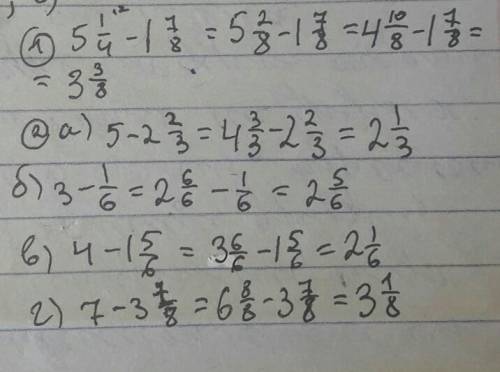 ① 5 1/4 ·² - 1 7/8 = 5 2/8 - 1 7/8 = 4 10/8 - 1 7/8 =
= 3 3/8
② а) 5 - 2 2/3 = 4 3/3 - 2 2/3 = 2 1/3
б) 3 - 1/6 = 2 6/6 - 1/6 = 2 5/6
в) 4 - 1 5/6 = 3 6/6 - 1 5/6 = 2 1/6
г) 7 - 3 7/8 = 6 8/8 - 3 7/8 = 3 1/8